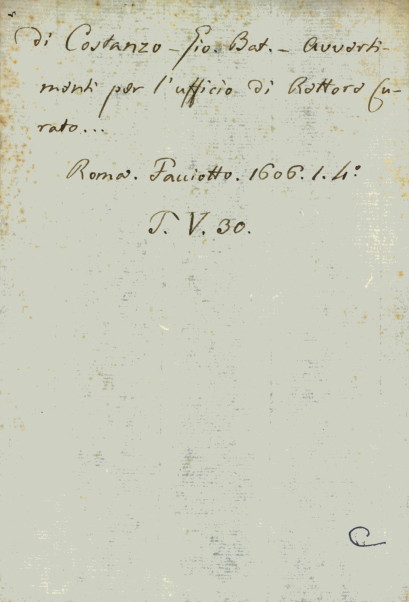 di Costanzo - Gio. Bat. - Avverti-
menti per l'ufficio di Rettore Cu-
rato...
Roma. Facciotto. 1606. 1. 4º
T. V. 30.
C